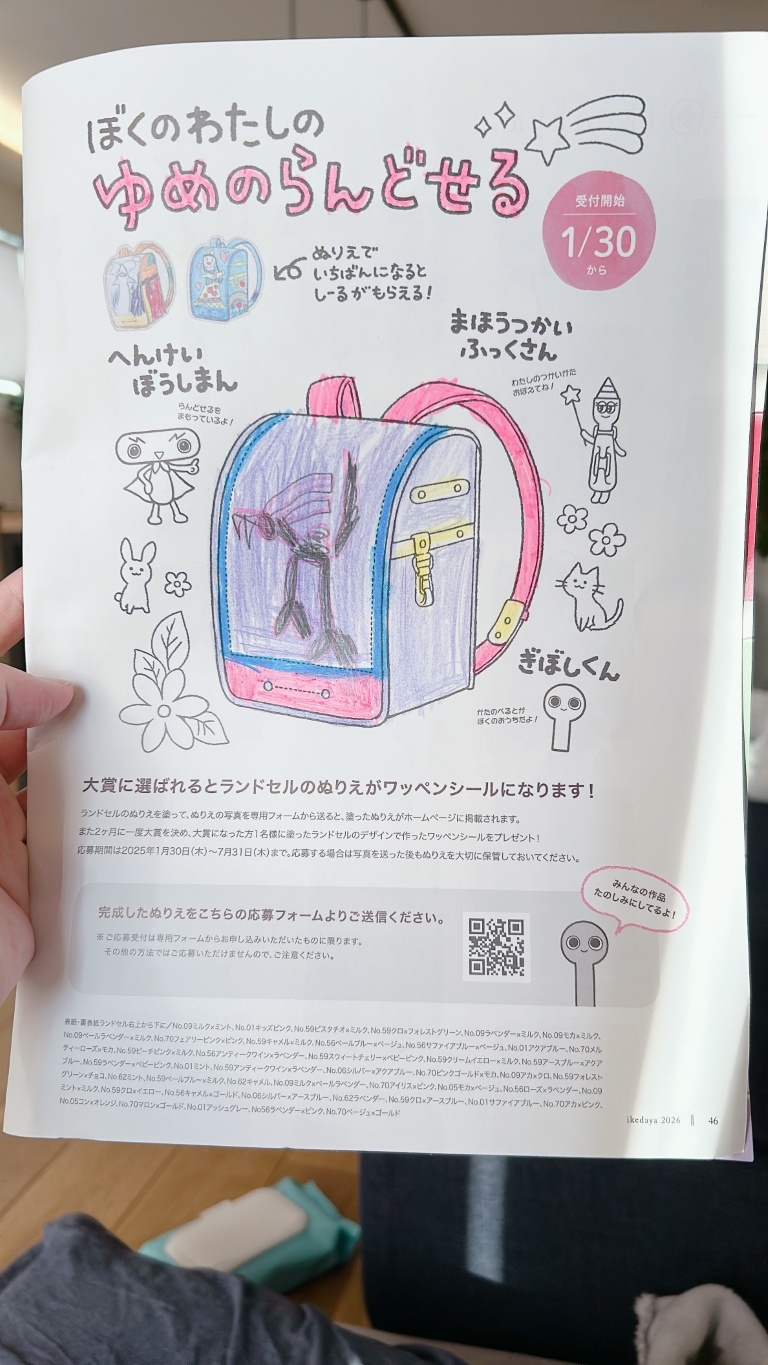 ぼくのわたしの
ゆめのらんどせる
受付開始
1/30
から
ぬりえで
いちばんになると
しーるがもらえる!
まほうつかい
ふっくさん
わたしのつかいかた
おぼえてね!
へんけい
ぼうしまん
らんどせるを
まもっているよ!
ぎぼしくん
かたのべるとが
ぼくのおうちだよ!
大賞に選ばれるとランドセルのぬりえがワッペンシールになります!
ランドセルのぬりえを塗って、ぬりえの写真を専用フォームから送ると、塗ったぬりえがホームページに掲載されます。
また2ヶ月に一度大賞を決め、大賞になった方1名様に塗ったランドセルのデザインで作ったワッペンシールをプレゼント!
応募期間は2025年1月30日(木)〜7月31日(木)まで。応募する場合は写真を送った後もぬりえを大切に保管しておいてください。
みんなの作品
たのしみにしてるよ!
完成したぬりえをこちらの応募フォームよりご送信ください。
※ご応募受付は専用フォームからお申し込みいただいたものに限ります。
その他の方法ではご応募いただけませんので、ご注意ください。
表紙・裏表紙ランドセル右上から下に/No.09ミルク×ミント、No.01キッズピンク、No.59ピスタチオ×ミルク、No.59クロ×フォレストグリーン、No.09ラベンダー×ミルク、No.09モカ×ミルク、
No.09ペールラベンダー×ミルク、No.70フェアリーピンク×ピンク、No.59キャメル×ミルク、No.56ペールブルー×ベージュ、No.56サファイアブルー×ベージュ、No.01アクアブルー、No.70メル
ティーローズ×モカ、No.59ピーチピンク×ミルク、No.56アンティークワイン×ラベンダー、No.59スウィートチェリー×ベビーピンク、No.59クリームイエロー×ミルク、No.59アースブルー×アクア
ブルー、No.59ラベンダー×ベビーピンク、No.01ミント、No.59アンティークワイン×ラベンダー、No.06シルバー×アクアブルー、No.70ピンクゴールド×モカ、No.09アカ×クロ、No.59フォレスト
グリーン×チョコ、No.62ミント、No.59ペールブルー×ミルク、No.62キャメル、No.09ミルク×ペールラベンダー、No.70アイリス×ピンク、No.05モカ×ベージュ、No.56ローズ×ラベンダー、No.09
ミント×ミルク、No.59クロ×イエロー、No.56キャメル×ゴールド、No.06シルバー×アースブルー、No.62ラベンダー、No.59クロ×アースブルー、No.01サファイアブルー、No.70アカ×ピンク、
No.05コン×オレンジ、No.70マロン×ゴールド、No.01アッシュグレー、No.56ラベンダー×ピンク、No.70ベージュ×ゴールド
ikedaya 2026 46